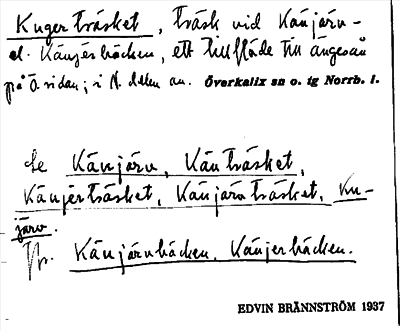 Kugerträsket, träsk vid Känjärv-
el. Känjerbäcken, ett tillflöde till ängesån
på ö. sidan; i N. delen av. Överkalix sn o. tg Norrb. l.
Se Känjärv, Känträsket,
Känjerträsket, Känjärvträsket, Ku-
järv.
Känjärvbäcken, Känjerbäcken.
EDVIN BRÄNNSTRÖM 1937